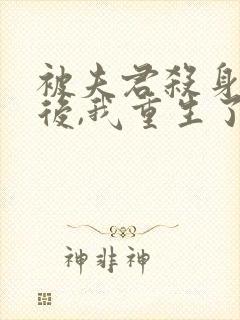 被夫君殺身
後,我重生了
神非神